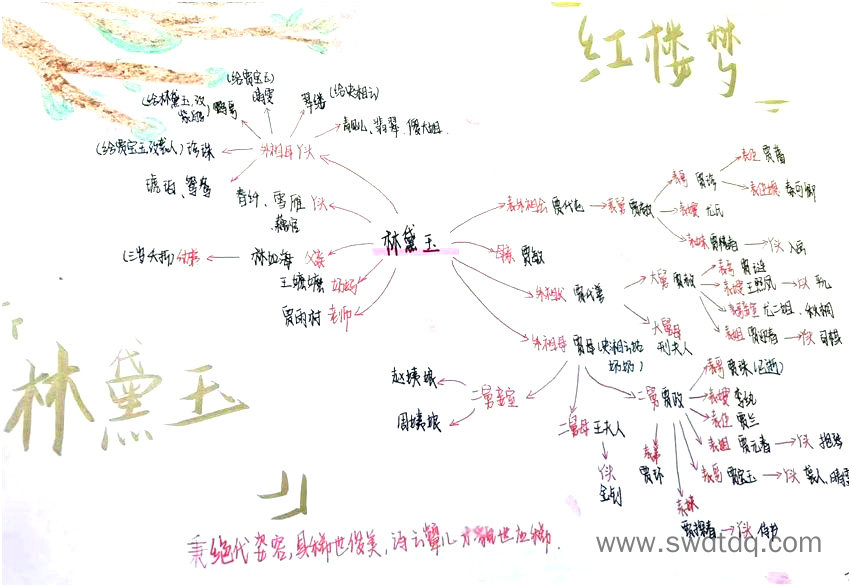 红楼梦
(给贾宝玉)
晴雯
翠缕
(给史湘云)
(给林黛玉,改
紫鹃)
鹦哥
翡翠、傻大姐
(给贾宝玉,改袭人) 珍珠
外祖母丫头
琥珀、鸳鸯
雪雁 丫头
藕官
林黛玉
(三岁夭折) 幼弟
林如海 父亲
王嬷嬷 奶妈
贾雨村 老师
表外祖公 贾代化
表舅 贾敬
表哥 贾珍
表侄 贾蓉
表侄媳 秦可卿
表嫂 尤氏
表妹 贾惜春
丫头 入画
母亲 贾敏
外祖父 贾代善
大舅 贾赦
表哥 贾琏
表嫂 王熙凤
丫头 平儿
尤二姐、秋桐
表姐 贾迎春
丫头 司棋
大舅母
刑夫人
外祖母 贾母 (史湘云姑
奶奶)
赵姨娘
周姨娘
二舅妾室
二舅母 王夫人
丫头
金钏
二舅 贾政
表哥 贾珠 (已逝)
表嫂 李纨
表侄 贾兰
表姐 贾元春
丫头 抱琴
表哥 贾宝玉
丫头 袭人、晴雯
表弟
贾环
表妹
贾探春
丫头 侍书
林黛玉
秉绝代姿容,具稀世俊美,诗云颦儿才貌世应稀.
www.swdtdq.com